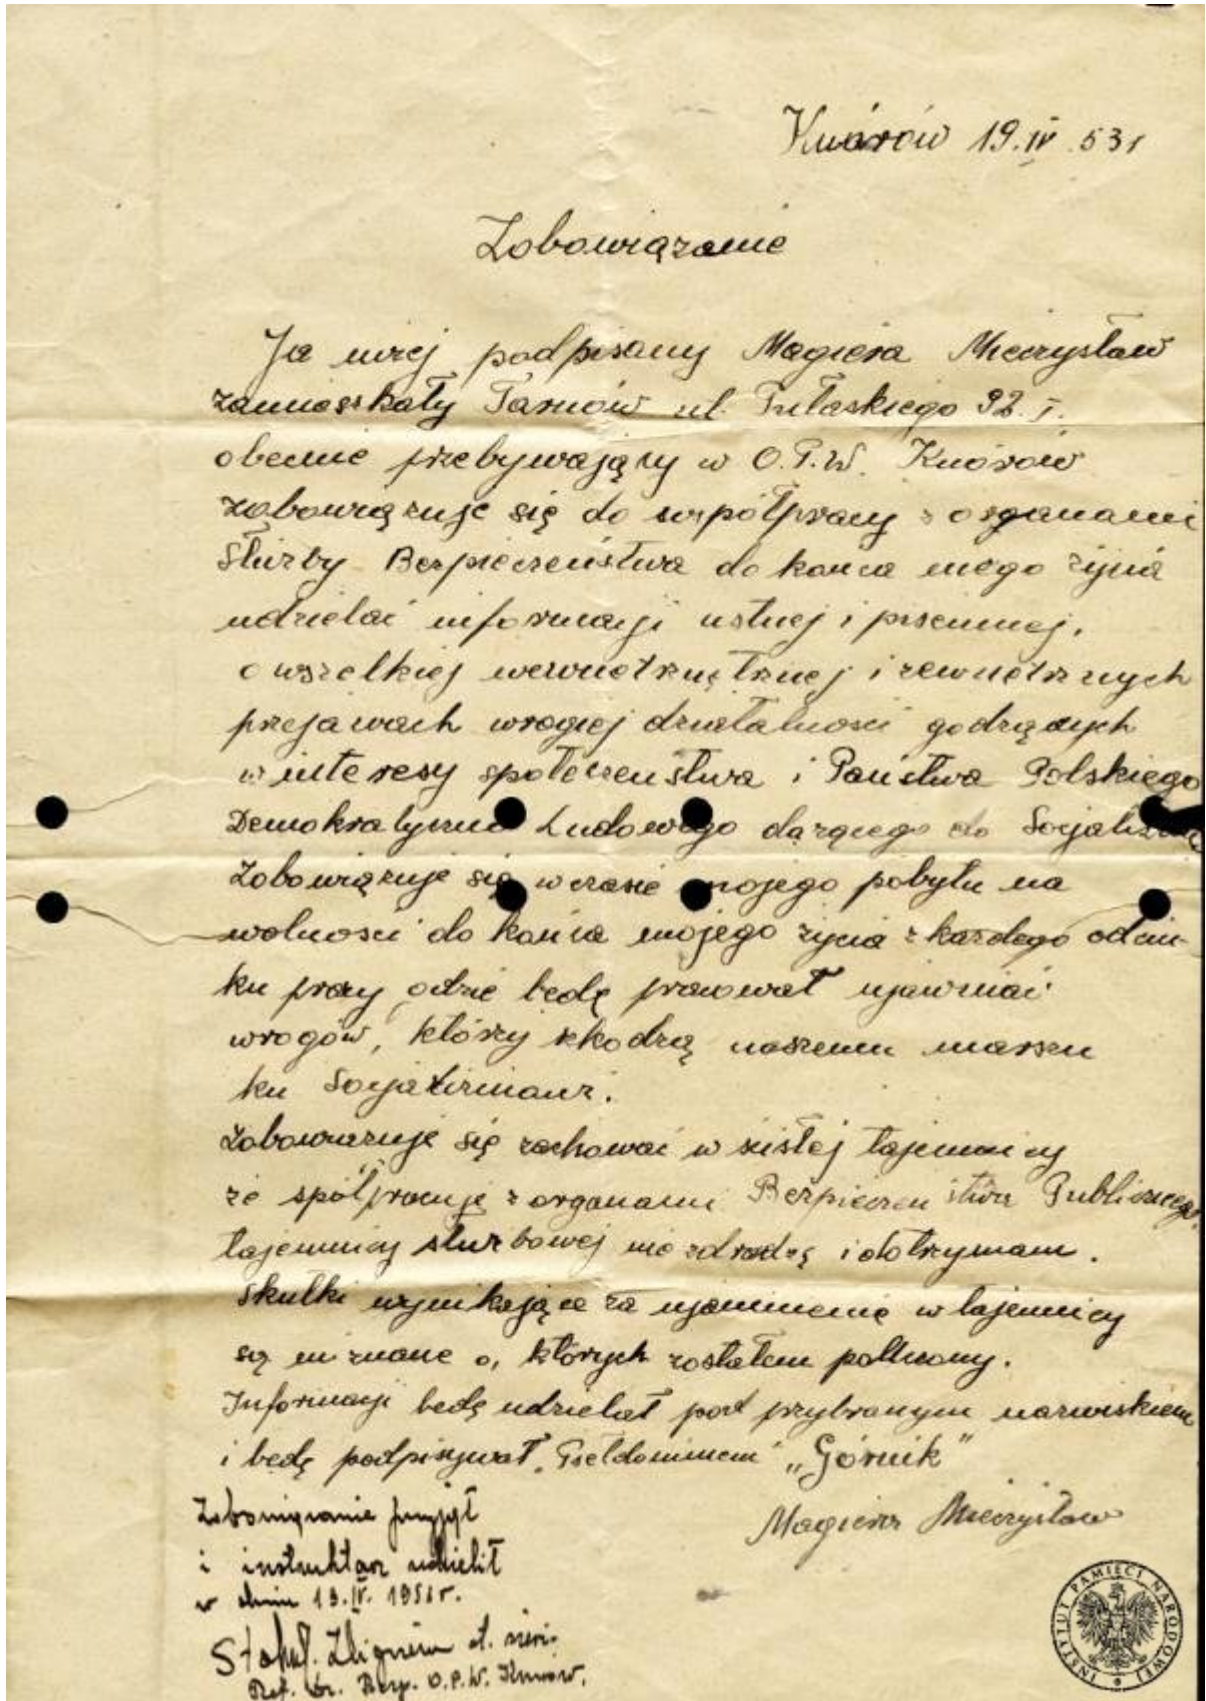 Knurów 19.IV.53r
Zobowiązanie
Ja niżej podpisany Magiera Mieczysław
zamieszkały Tarnów ul. Pułaskiego 92. I.
obecnie przebywający w O.P.W. Knurów
zobowiązuje się do współpracy z organami
Służby Bezpieczeństwa do końca mego życia
udzielać informacji ustnej i pisemnej.
o wszelkiej i zewnetrznych
przejawach wrogiej działalnosci godzących
w interesy społeczeństwa i Państwa Polskiego
Demokratyczno Ludowego dążącego do
Zobowiązuje się w czasie mojego pobytu na
wolnosci do końca mojego życia z każdego odcin-
ku pracy gdzie będę pracował ujawniać
wrogów, którzy szkodzą naszemu marszu
ku Socjalizmowi.
Zobowiazuje się zachować w ścisłej tajemnicy
że spółpracuje z organami Bezpieczeństwa Publicznego,
tajemnicy służbowej nie zdradzę i dotrzymam.
Skutki wynikające za ujawnienie w tajemnicy
są mi znane o, których zostałem pouczony.
Informacji będę udzielał pod przybranym nazwiskiem
i będę podpisywał „Górnik”
Magiera Mieczysław
Zobowiązanie przyjął
i instruktarz udzielił
w dniu 19.IV.
Zbigniew st. sierż.
Ref. Bezp. O.P.W. Knurów.
INSTYTUT PAMIĘCI NARODOWEJ